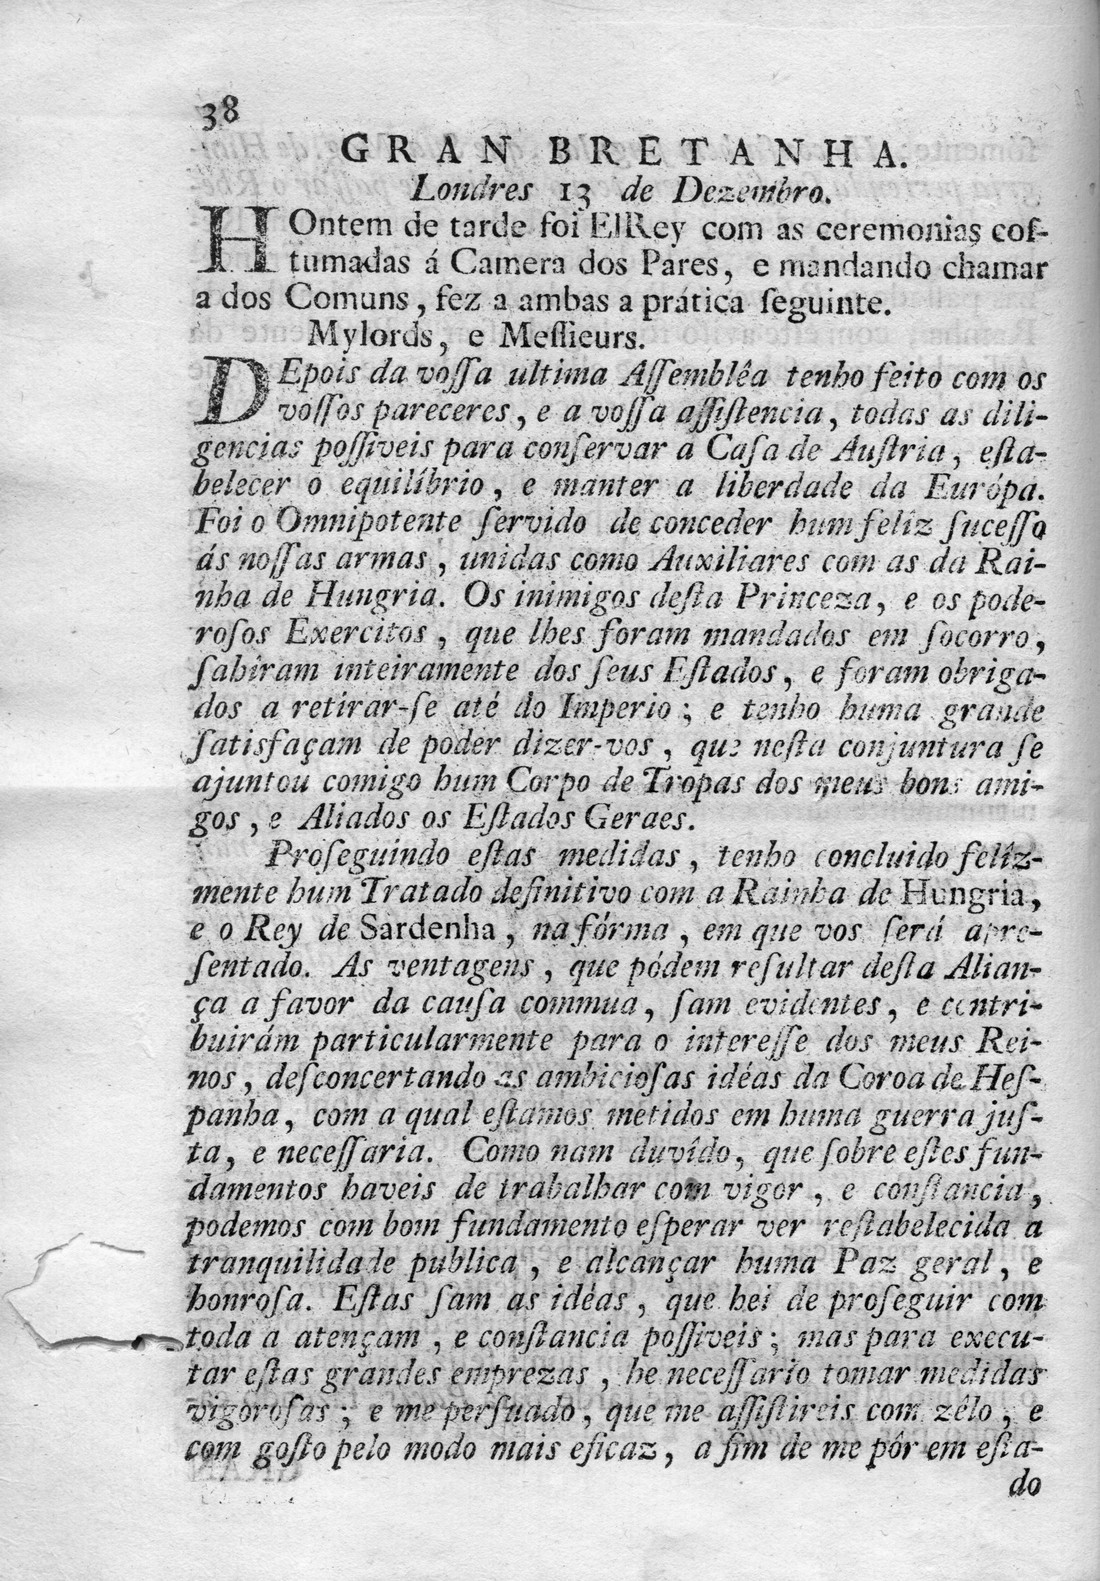 38
GRAN BRETANHA.
Londres 13 de Dezembro.
HOntem de tarde foi ElRey com as ceremonias coſ-
tumadas á Camera dos Pares, e mandando chamar
a dos Comuns, fez a ambas a prática ſeguinte.
Mylords, e Meſſieurs.
DEpois da voſſa ultima Aſſemblêa tenho feito com os
voſſos pareceres, e a voſſa aſſiſtencia, todas as dili-
gencias poſſiveis para conſervar a Caſa de Auſtria, eſta-
belecer o equilíbrio, e manter a liberdade da Európa.
Foi o Omnipotente ſervido de conceder hum felîz ſuceſſo
ás noſſas armas, unidas como Auxiliares com as da Rai-
nha de Hungria. Os inimigos deſta Princeza, e os pode-
roſos Exercitos, que lhes foram mandados em ſocorro,
ſahíram inteiramente dos ſeus Eſtados, e foram obriga-
dos a retirar-ſe até do Imperio; e tenho huma grande
ſatisfaçam de poder dizer-vos, que neſta conjuntura ſe
ajuntou comigo hum Corpo de Tropas dos meus bons ami-
gos, e Aliados os Eſtados Geraes.
Proſeguindo eſtas medidas, tenho concluido felîz-
mente hum Tratado definitivo com a Rainha de Hungria,
e o Rey de Sardenha, na fórma, em que vos ſerá apre-
ſentado. As ventagens, que pódem reſultar deſta Alian-
ça a favor da cauſa commua, ſam evidentes, e contri-
buirám particularmente para o intereſſe dos meus Rei-
nos, deſconcertando as ambicioſas idéas da Coroa de Heſ-
panha, com a qual eſtamos metidos em huma guerra juſ-
ta, e neceſſaria. Como nam duvído, que ſobre eſtes fun-
damentos haveis de trabalhar com vigor, e conſtancia,
podemos com bom fundamento eſperar ver reſtabelecida a
tranquilidade publica, e alcançar huma Paz geral, e
honroſa. Eſtas ſam as idéas, que hei de proſeguir com
toda a atençam, e conſtancia poſſiveis; mas para execu-
tar eſtas grandes emprezas, he neceſſario tomar medidas
vigoroſas; e me perſuado, que me aſſiſtireis com zêlo, e
com goſto pelo modo mais eficaz, a fim de me pôr em eſta-
do